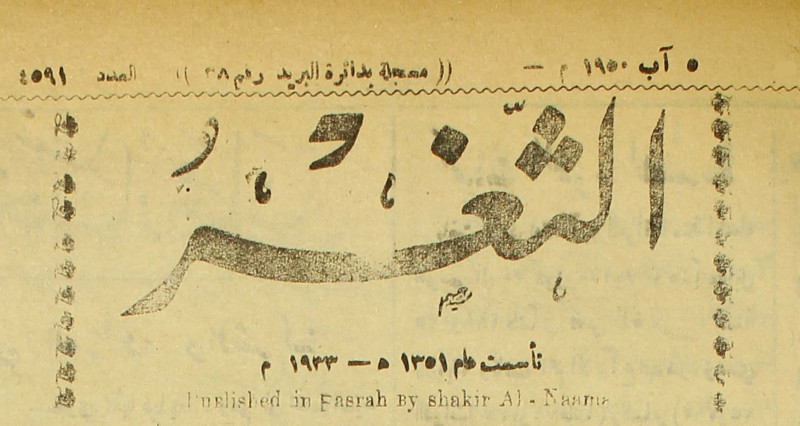 ٥ آب ١٩٥٠ م — (( مسجلة بدائرة البريد رقم ٣٨ )) العدد ٤٥٩١
الثغر
تأسست عام ١٣٥١ ه — ١٩٣٣ م
Published in Basrah By shakir Al - Naama